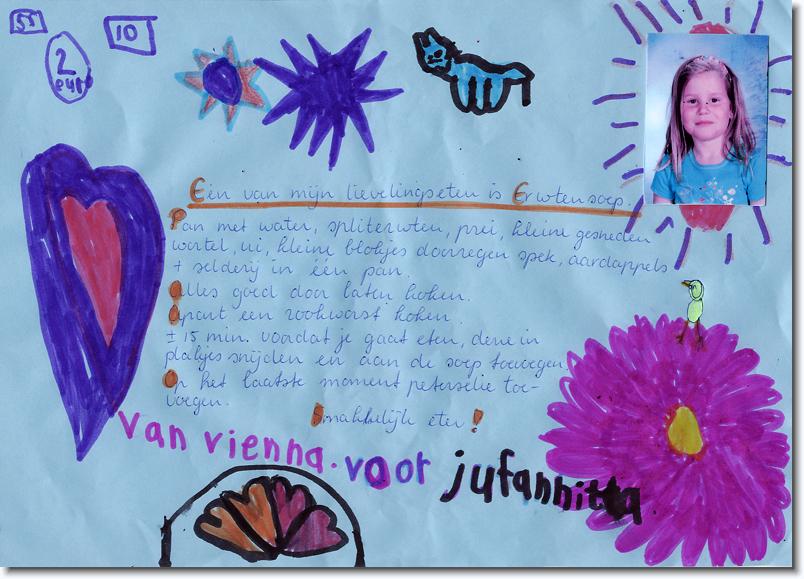 55
10
2
euro
Eén van mijn lievelingseten is Erwtensoep.
Pan met water, spliterwten, prei, kleine gesneden
wortel, ui, kleine blokjes doorregen spek, aardappels
+ selderij in één pan.
Alles goed door laten koken.
Apart een rookworst koken.
± 15 min. voordat je gaat eten, deze in
plakjes snijden en aan de soep toevoegen
Op het laatste moment peterselie toe-
voegen.
Smakkelijk eten!
van vienna. voor jufannitta.